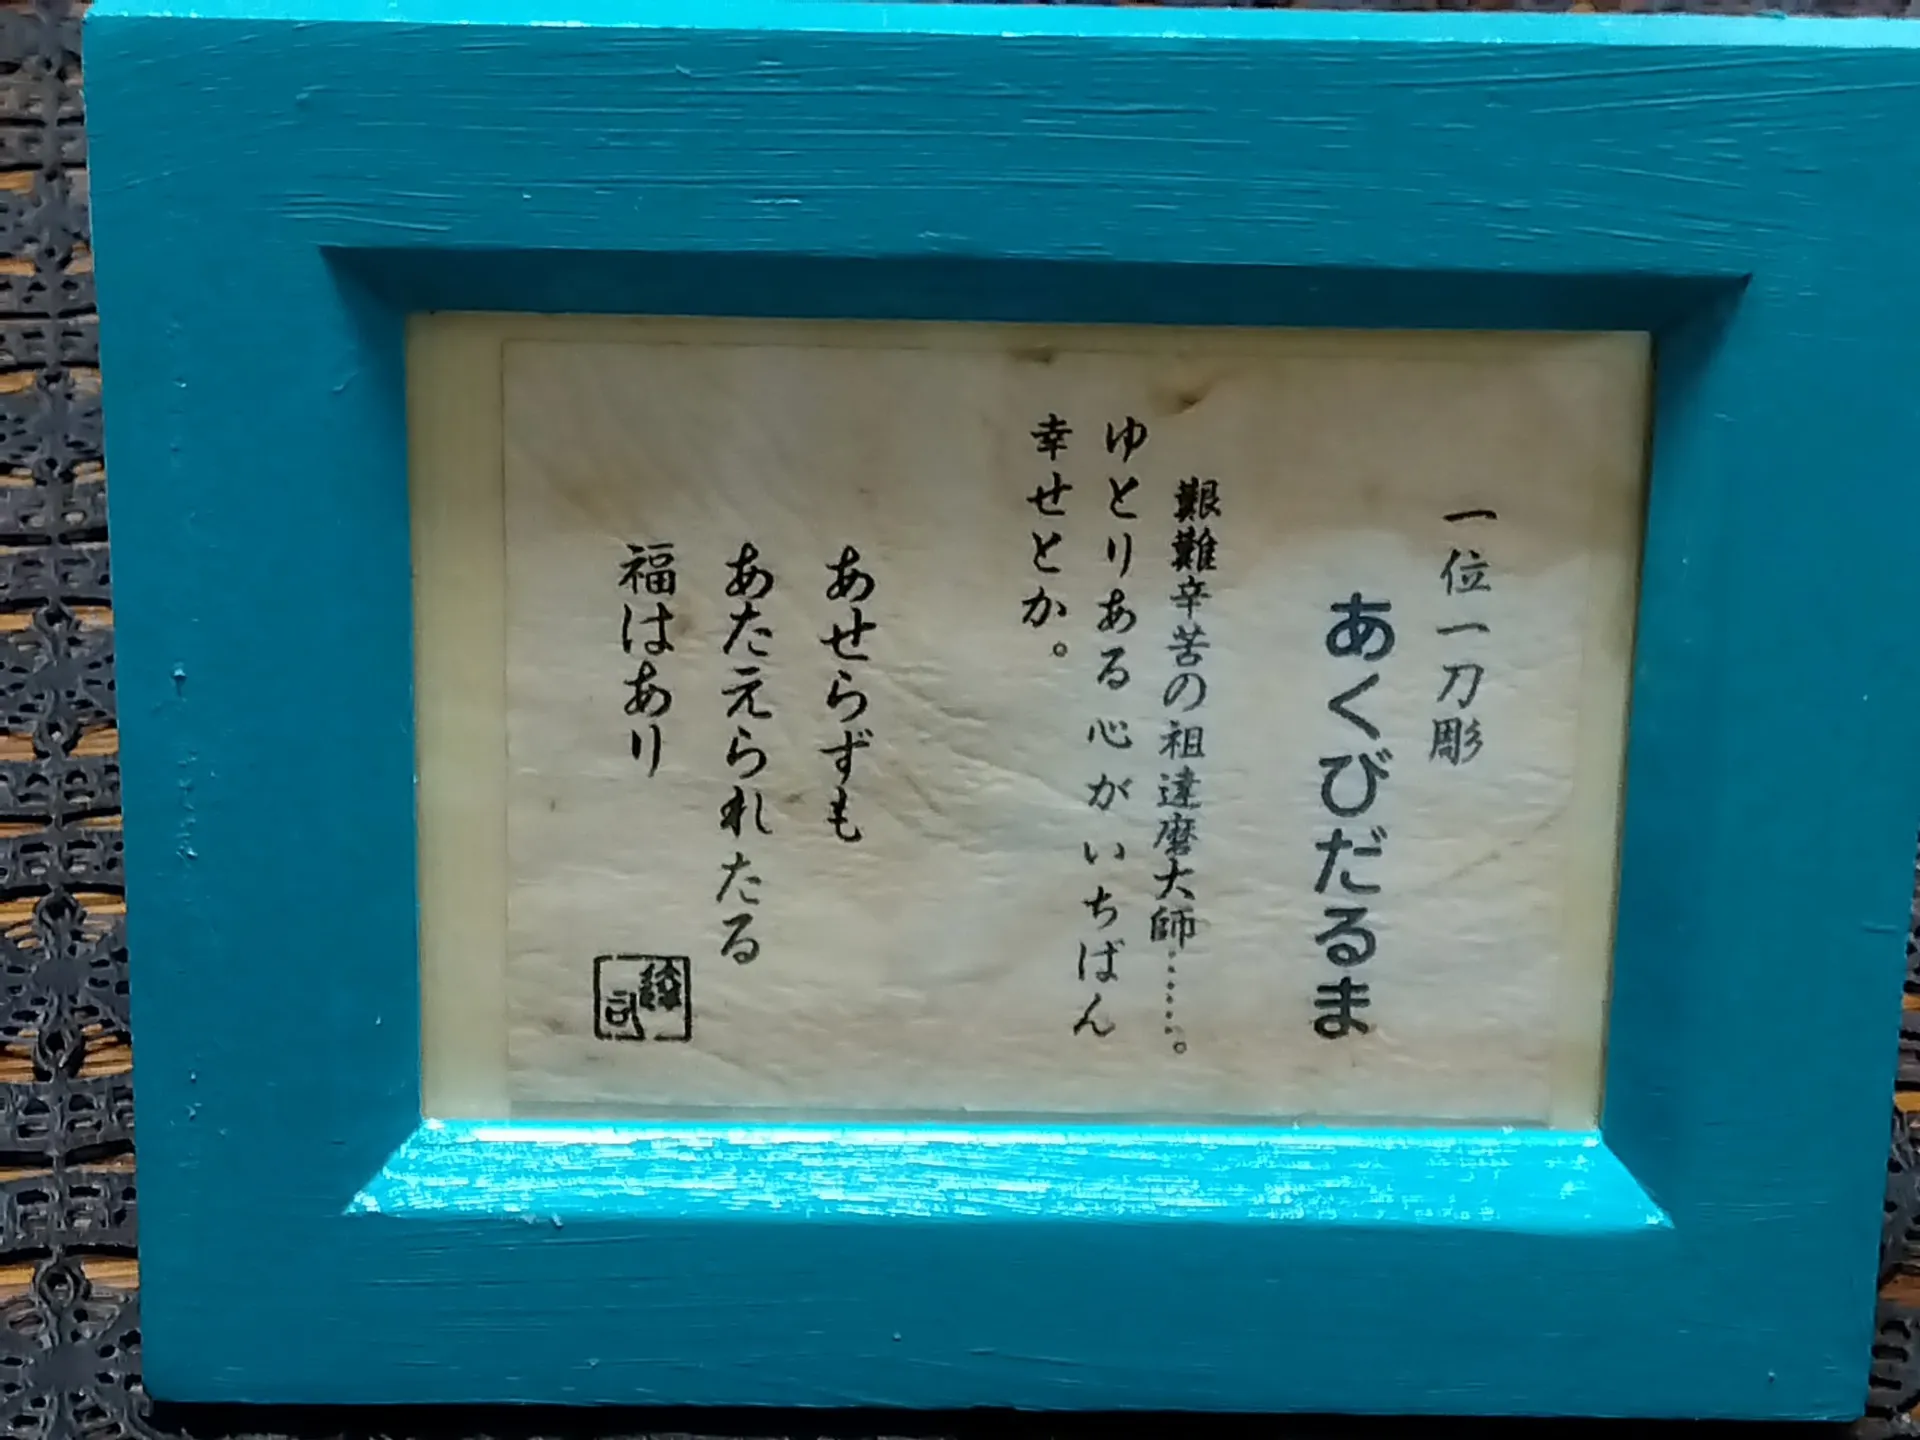 一位一刀彫
あくびだるま
艱難辛苦の祖達磨大師……。
ゆとりある心がいちばん
幸せとか。
あせらずも
あたえられたる
福はあり